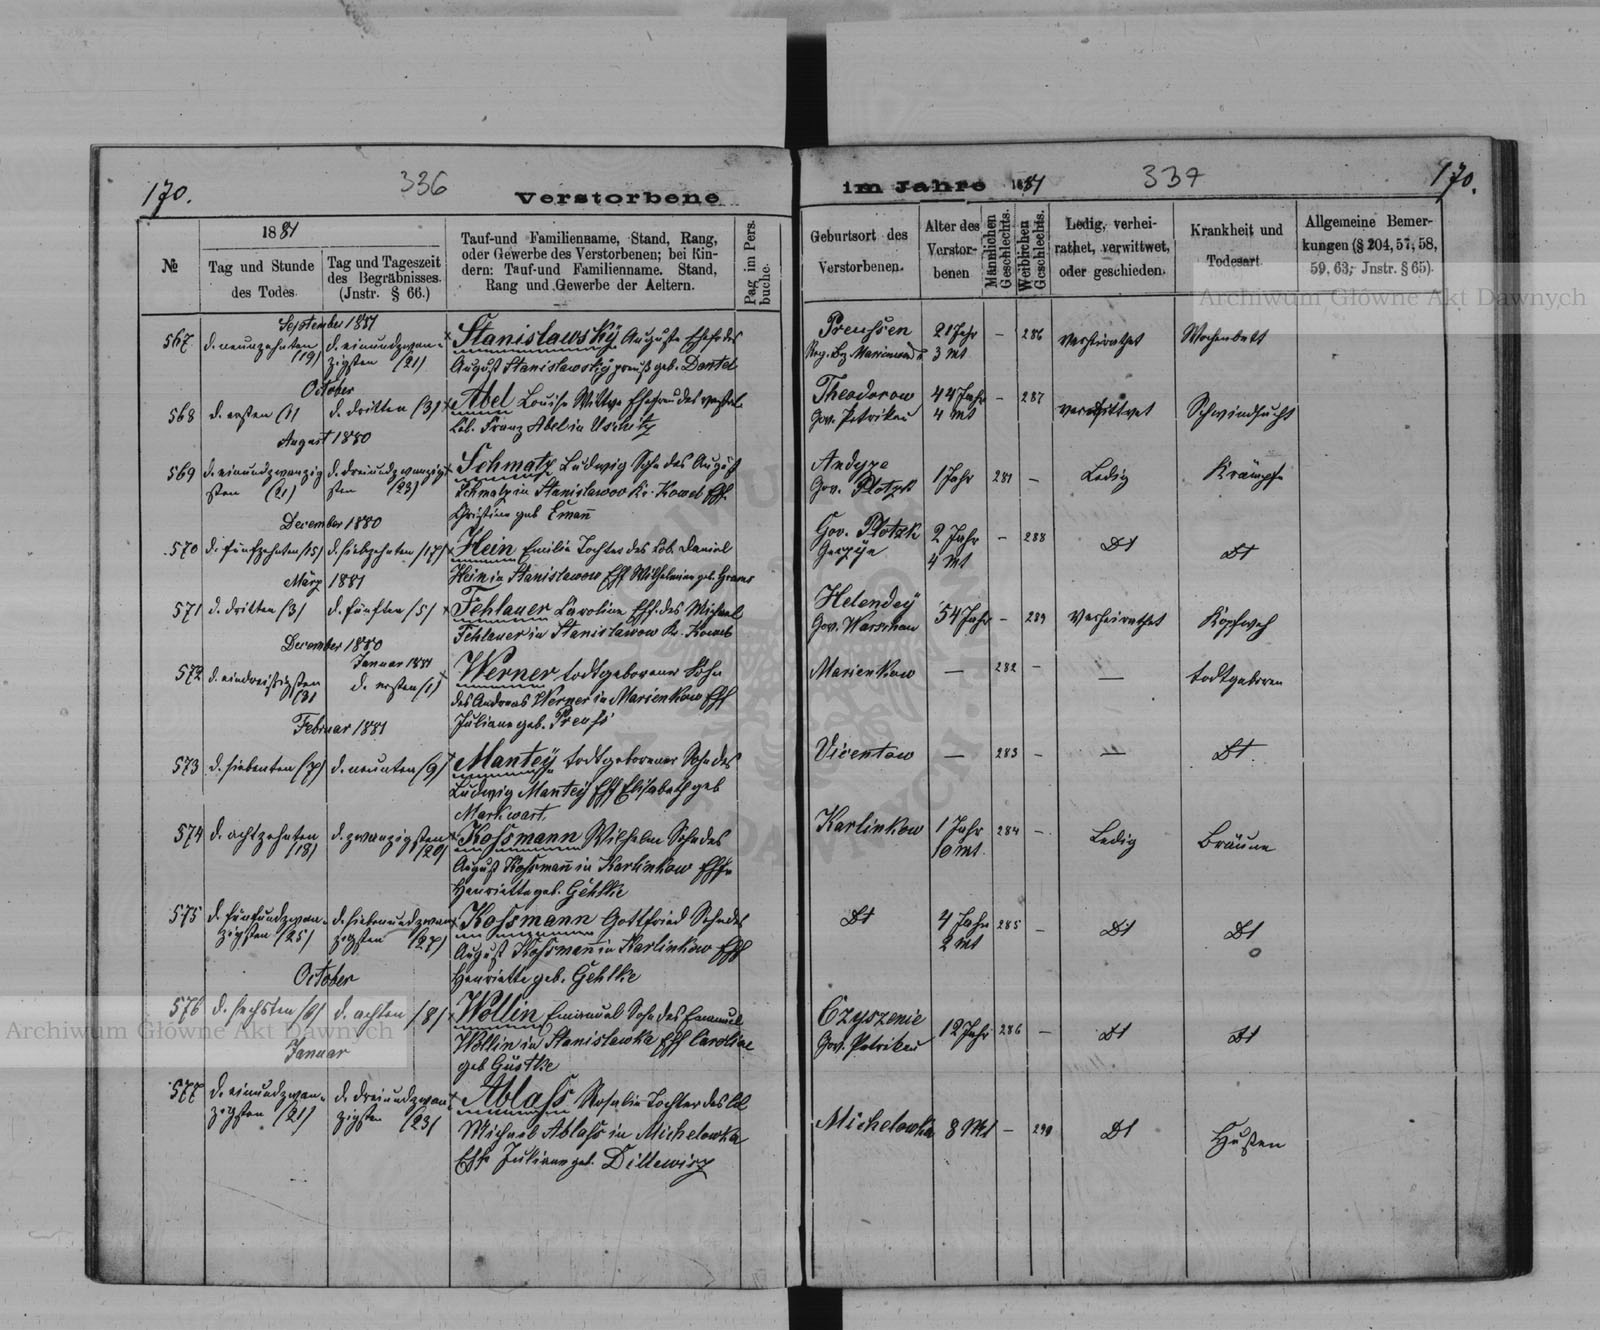 170.
336
Verstorbene
im Jahre 1881
337
170.
№
1881
Tag und Stunde
des Todes.
Tag und Tageszeit
des Begräbnisses.
(Jnstr. § 66.)
Tauf-und Familienname, Stand, Rang,
oder Gewerbe des Verstorbenen; bei Kin-
dern: Tauf-und Familienname, Stand,
Rang und Gewerbe der Aeltern.
Pag im Pers.
buche.
Geburtsort des
Verstorbenen.
Alter des
Verstor-
benen
Männlichen
Geschlechts.
Weiblichen
Geschlechts.
Ledig, verhei-
rathet, verwittwet,
oder geschieden.
Krankheit und
Todesart
Allgemeine Bemer-
kungen (§ 204, 57, 58,
59, 63, Jnstr. § 65).
Archiwum Główne Akt Dawnych
September 1881
567 d. neunzehnten d. einundzwan-
(19) zigsten (21)
Stanislawsky Auguste Ehefr des
August Stanislawsky preuß geb. Dantel
Preußen 21 Jahr – 286 verheirathet Wochenbett
3 Mt
October
568 d. ersten (1) d. dritten (3) Abel Louise Wittwe Ehefrau des verstorb.
Col. Franz Abel in
Theodorow 44 Jahr – 287 verwittwet Schwindsucht
Gov. Petrikau 4 Mt
August 1880
569 d. einundzwanzig d. dreiundzwanzig
sten (21) sten (23)
Schmatz Ludwig Sohn des August
Schmatz in Stanislawow Kr. Kowel Ehf.
Christine geb Emañ
Gov. Plotzk 1 Jahr 281 – Ledig Krämpfe
December 1880
570 d. fünfzehnten (15) d. siebzehnten (17) Hein Emilie Tochter des Col. Daniel
Hein in Stanislawow Ehf Wilhelmine geb.
Gov. Plotzk 2 Jahr – 288 Dt Dt
4 Mt
März 1881
571 d. dritten (3) d. fünften (5) Fehlauer Caroline Ehf. des Michael
Fehlauer in Stanislawow Kr. Kowel
Helendey 54 Jahr – 289 verheirathet Kopfweh
Gov. Warschau
December 1880
Januar 1881
572 d. eindreißigsten d. ersten (1)
(31)
Werner todtgeborener Sohn
des Andreas Werner in Marienkow Ehf
Juliane geb. Preuß
Marienkow — 282 – — todtgeboren
Februar 1881
573 d. siebenten (7) d. neunten (9) Mantey todtgeborener Sohn des
Ludwig Mantey Ehf Elisabeth geb
Markwart.
Vicentow — 283 – — Dt.
574 d. achtzehnten d. zwanzigsten
(18) (20)
Koßmann Wilhelm Sohn des
August Koßmañ in Karlinkow Ehf.
Henriette geb. Gehlke
Karlinkow 1 Jahr 284 – Ledig Bräune
10 Mt.
575 d. fünfundzwan- d. siebenundzwan
zigsten (25) zigsten (27)
Koßmann Gottfried Sohn des
August Koßmañ in Karlinkow Ehf
Henriette geb. Gehlke
Dt 4 Jahr 285 – Dt Dt
2 Mt
October
576 d. sechsten (6) d. achten (8) Wollin Emanuel Sohn des Emanuel
Wollin in Stanislawka Ehf Caroline
geb Gustke
Czyszenie 12 Jahr 286 – Dt Dt
Gov. Petrikau
Archiwum Główne Akt Dawnych
Januar
577 d. einundzwan- d. dreiundzwan
zigsten (21) zigsten (23)
Ablaß Rosalie Tochter des Col
Michael Ablaß in Michelowka
Ehfr Juliane geb.
Michelowka 8 Mt – 290 Dt Husten